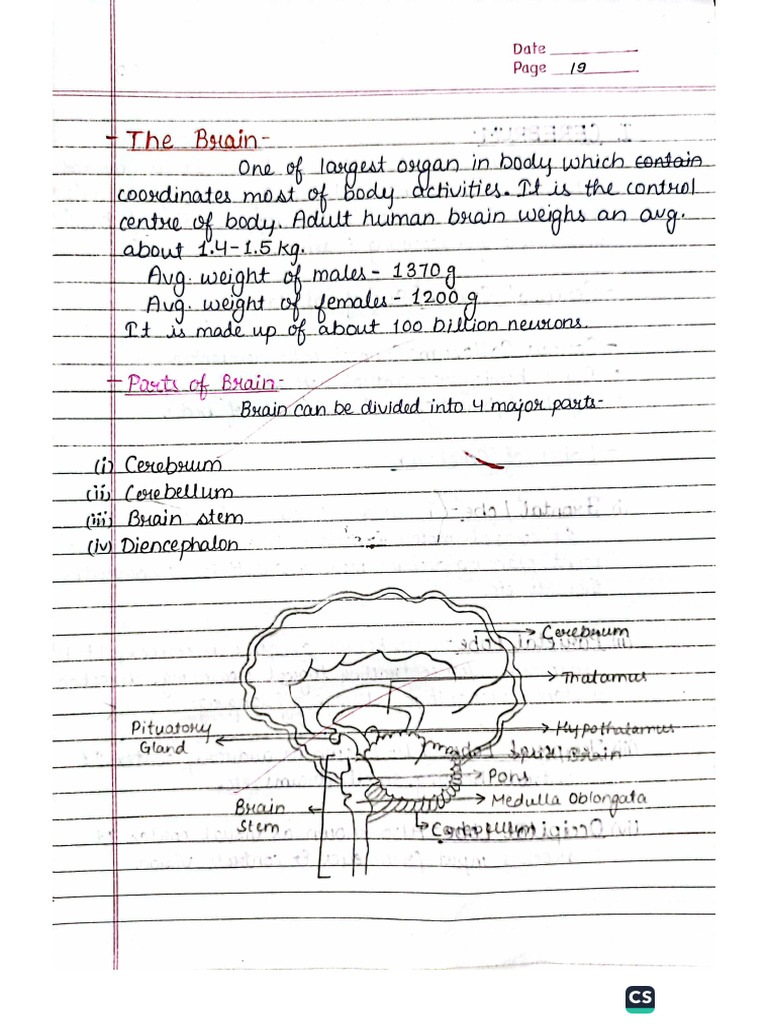 Date
Page 19
- The Brain -
One of largest organ in body which contain
coordinates most of body activities. It is the control
centre of body. Adult human brain weighs an avg.
about 1.4-1.5 kg.
Avg. weight of males - 1370 g
Avg. weight of females - 1200 g
It is made up of about 100 billion neurons.
- Parts of Brain -
Brain can be divided into 4 major parts-
(i) Cerebrum
(ii) Cerebellum
(iii) Brain stem
(iv) Diencephalon
Cerebrum
Thalamus
Pituatory
Gland
Hypothalamus
Brain
Pons
Medulla Oblongata
Brain
Stem
CS